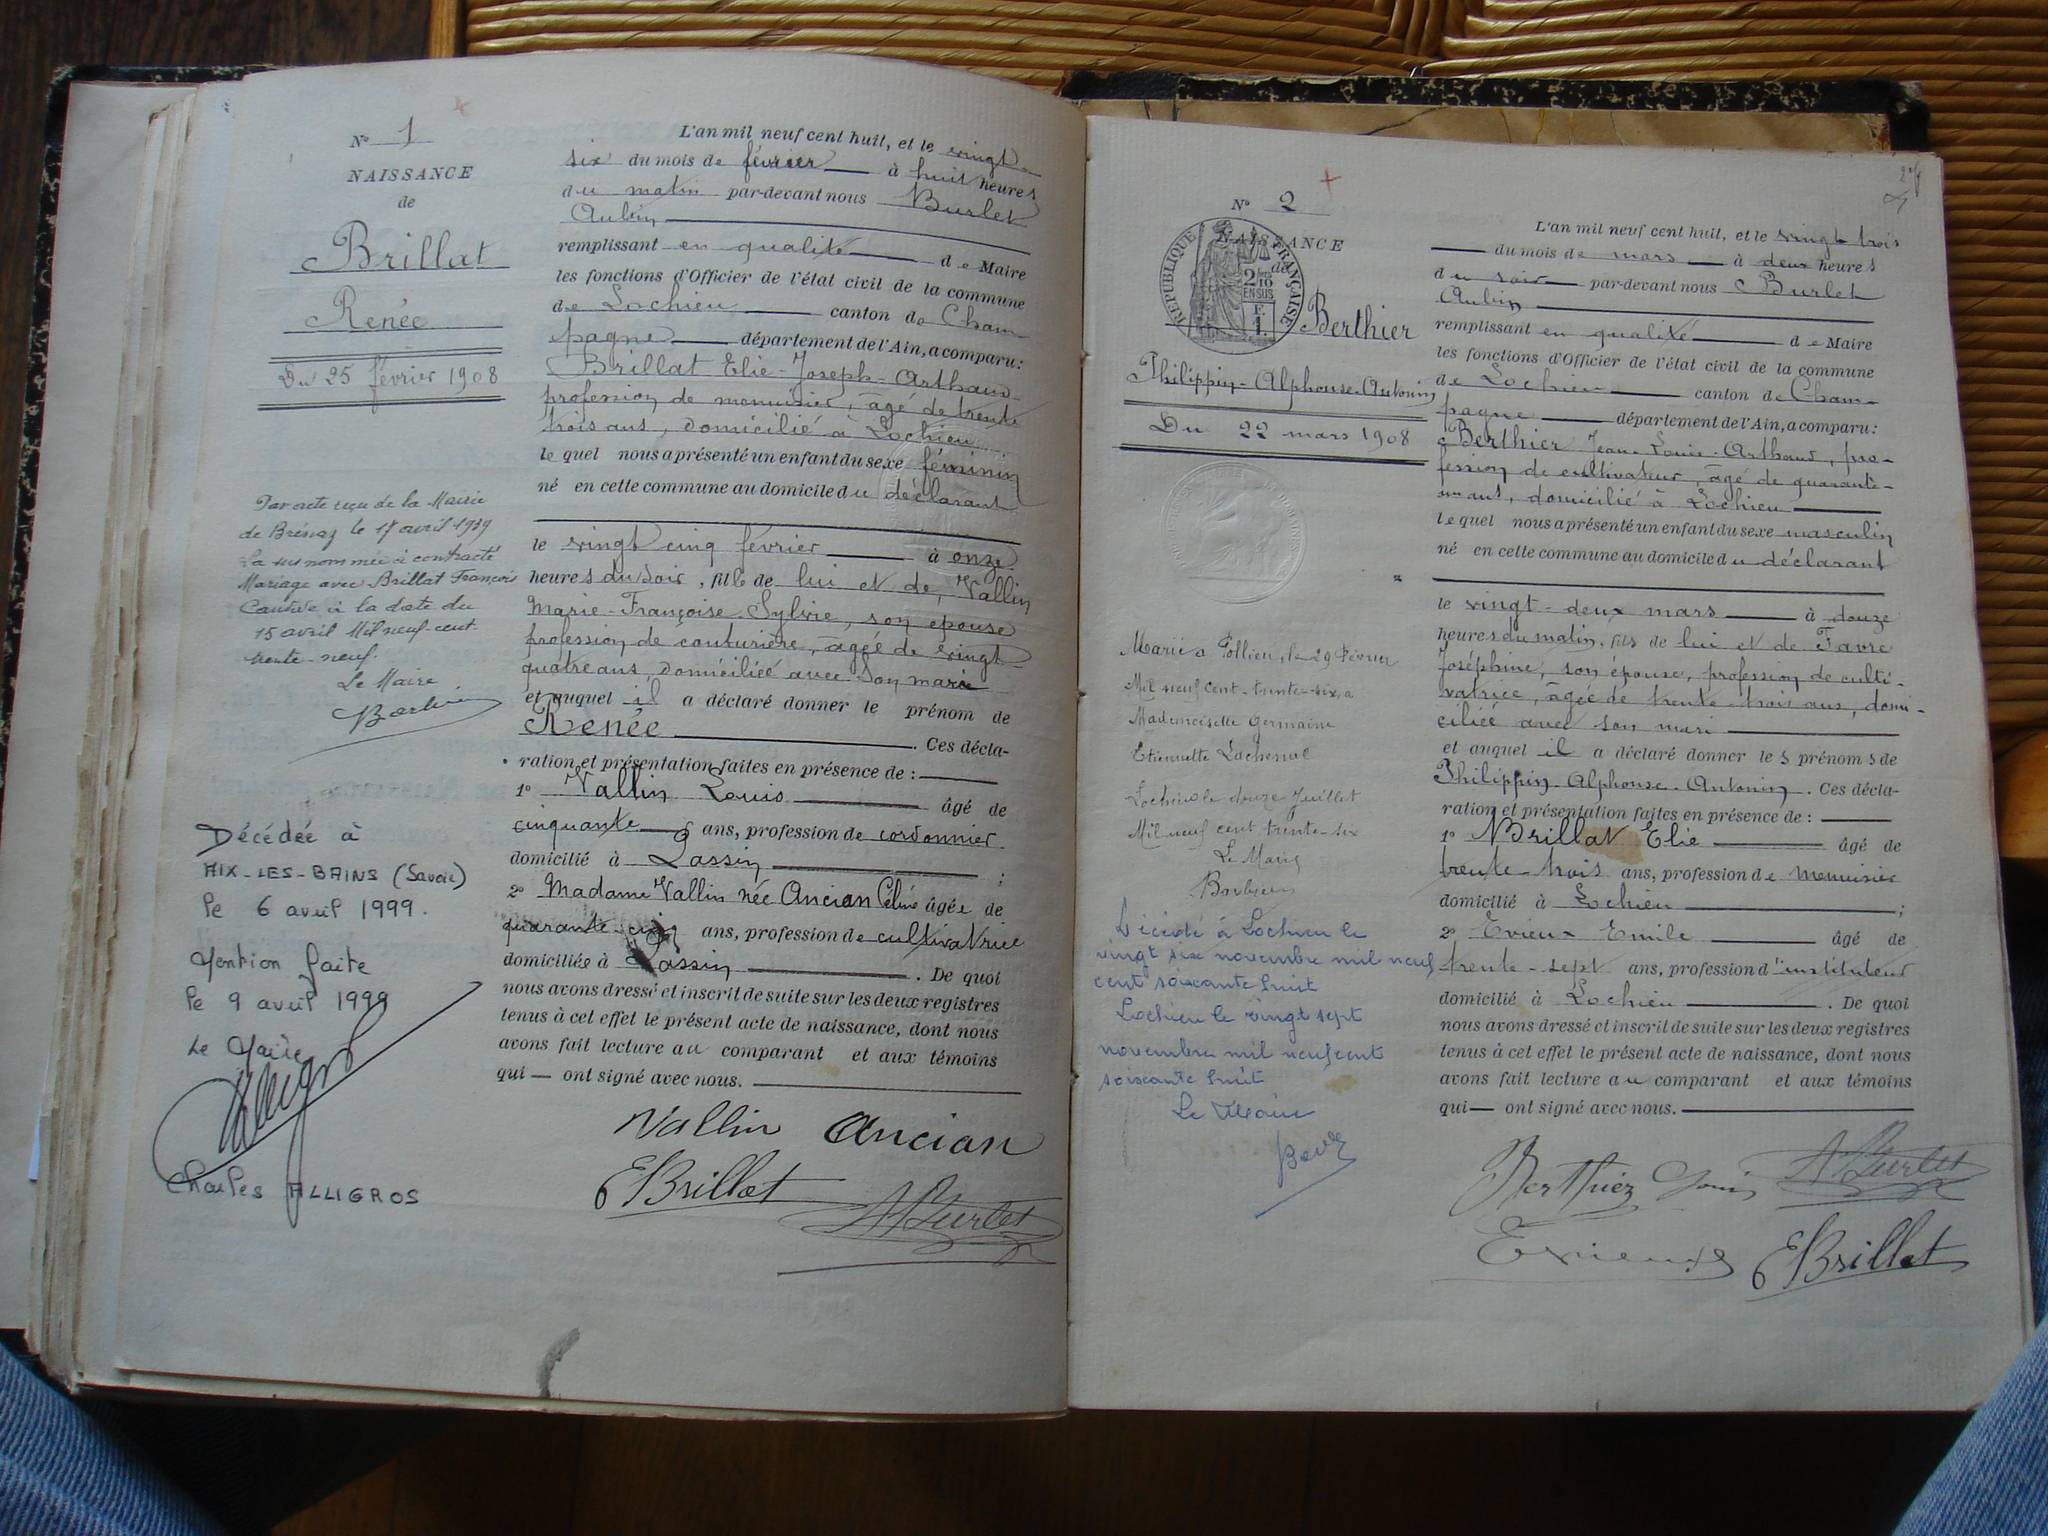 N° 1
NAISSANCE
de
Brillat
Renée
Du 25 février 1908
Par acte reçu de la Mairie
de Brénaz le 17 avril 1939
la susnommée a contracté
Mariage avec Brillat François
à la date du
15 avril Mil neuf-cent-
trente-neuf.
Le Maire
Décédée à
AIX-LES-BAINS (Savoie)
le 6 avril 1999.
Mention faite
le 9 avril 1999
Le Maire
Charles ALLIGROS
L'an mil neuf cent huit, et le vingt
six du mois de février à huit heures
du matin par-devant nous Burlet
Aubin
remplissant en qualité de Maire
les fonctions d'Officier de l'état civil de la commune
de Lochieu canton de Cham
pagne département de l'Ain, a comparu:
Brillat Elie-Joseph-Arthaud
profession de menuisier, âgé de trente
trois ans, domicilié à Lochieu
le quel nous a présenté un enfant du sexe féminin
né en cette commune au domicile du déclarant
le vingt cinq février à onze
heures du soir, fille de lui et de, Vallin
Marie-Françoise-Sylvie, son épouse
profession de couturière, âgée de vingt
quatre ans, domiciliée avec son marie
et auquel il a déclaré donner le prénom de
Renée. Ces décla-
ration et présentation faites en présence de :
1° Vallin Louis âgé de
cinquante ans, profession de cordonnier
domicilié à Passin ;
2° Madame Vallin née Ancian Céline âgée de
quarante-cinq ans, profession de cultivatrice
domiciliée à Passin. De quoi
nous avons dressé et inscrit de suite sur les deux registres
tenus à cet effet le présent acte de naissance, dont nous
avons fait lecture au comparant et aux témoins
qui — ont signé avec nous.
Vallin Ancian
EBrillat ABurlet
N° 2
NAISSANCE
de
REPUBLIQUE FRANÇAISE
2/10
EN SUS
1 F.
Berthier
Philippin-Alphonse-Antonin
Du 22 mars 1908
Marié à Pollieu, le 29 Février
Mil neuf cent-trente-six, à
Mademoiselle Germaine
Etiennette Lachenal
Lochieu le douze Juillet
Mil neuf cent trente-six
Le Maire
Décédé à Lochieu le
vingt six novembre mil neuf
cent soixante huit
Lochieu le vingt sept
novembre mil neuf cent
soixante huit
Le Maire
L'an mil neuf cent huit, et le vingt trois
du mois de mars à deux heures
du soir par-devant nous Burlet
Aubin
remplissant en qualité de Maire
les fonctions d'Officier de l'état civil de la commune
de Lochieu canton de Cham-
pagne département de l'Ain, a comparu:
Berthier Jean-Louis-Arthaud, pro-
fession de cultivateur, âgé de quarante-
un ans, domicilié à Lochieu
le quel nous a présenté un enfant du sexe masculin
né en cette commune au domicile du déclarant
le vingt-deux mars à douze
heures du matin, fils de lui et de Favre
Joséphine, son épouse, profession de culti-
vatrice, âgée de trente-trois ans, domi-
ciliée avec son mari
et auquel il a déclaré donner les prénoms de
Philippin-Alphonse-Antonin. Ces décla-
ration et présentation faites en présence de :
1° Brillat Elie âgé de
trente-trois ans, profession de menuisier
domicilié à Lochieu ;
2° Evieux Emile âgé de
trente-sept ans, profession d'instituteur
domicilié à Lochieu. De quoi
nous avons dressé et inscrit de suite sur les deux registres
tenus à cet effet le présent acte de naissance, dont nous
avons fait lecture au comparant et aux témoins
qui — ont signé avec nous.
Berthier Louis ABurlet
Evieux EBrillat